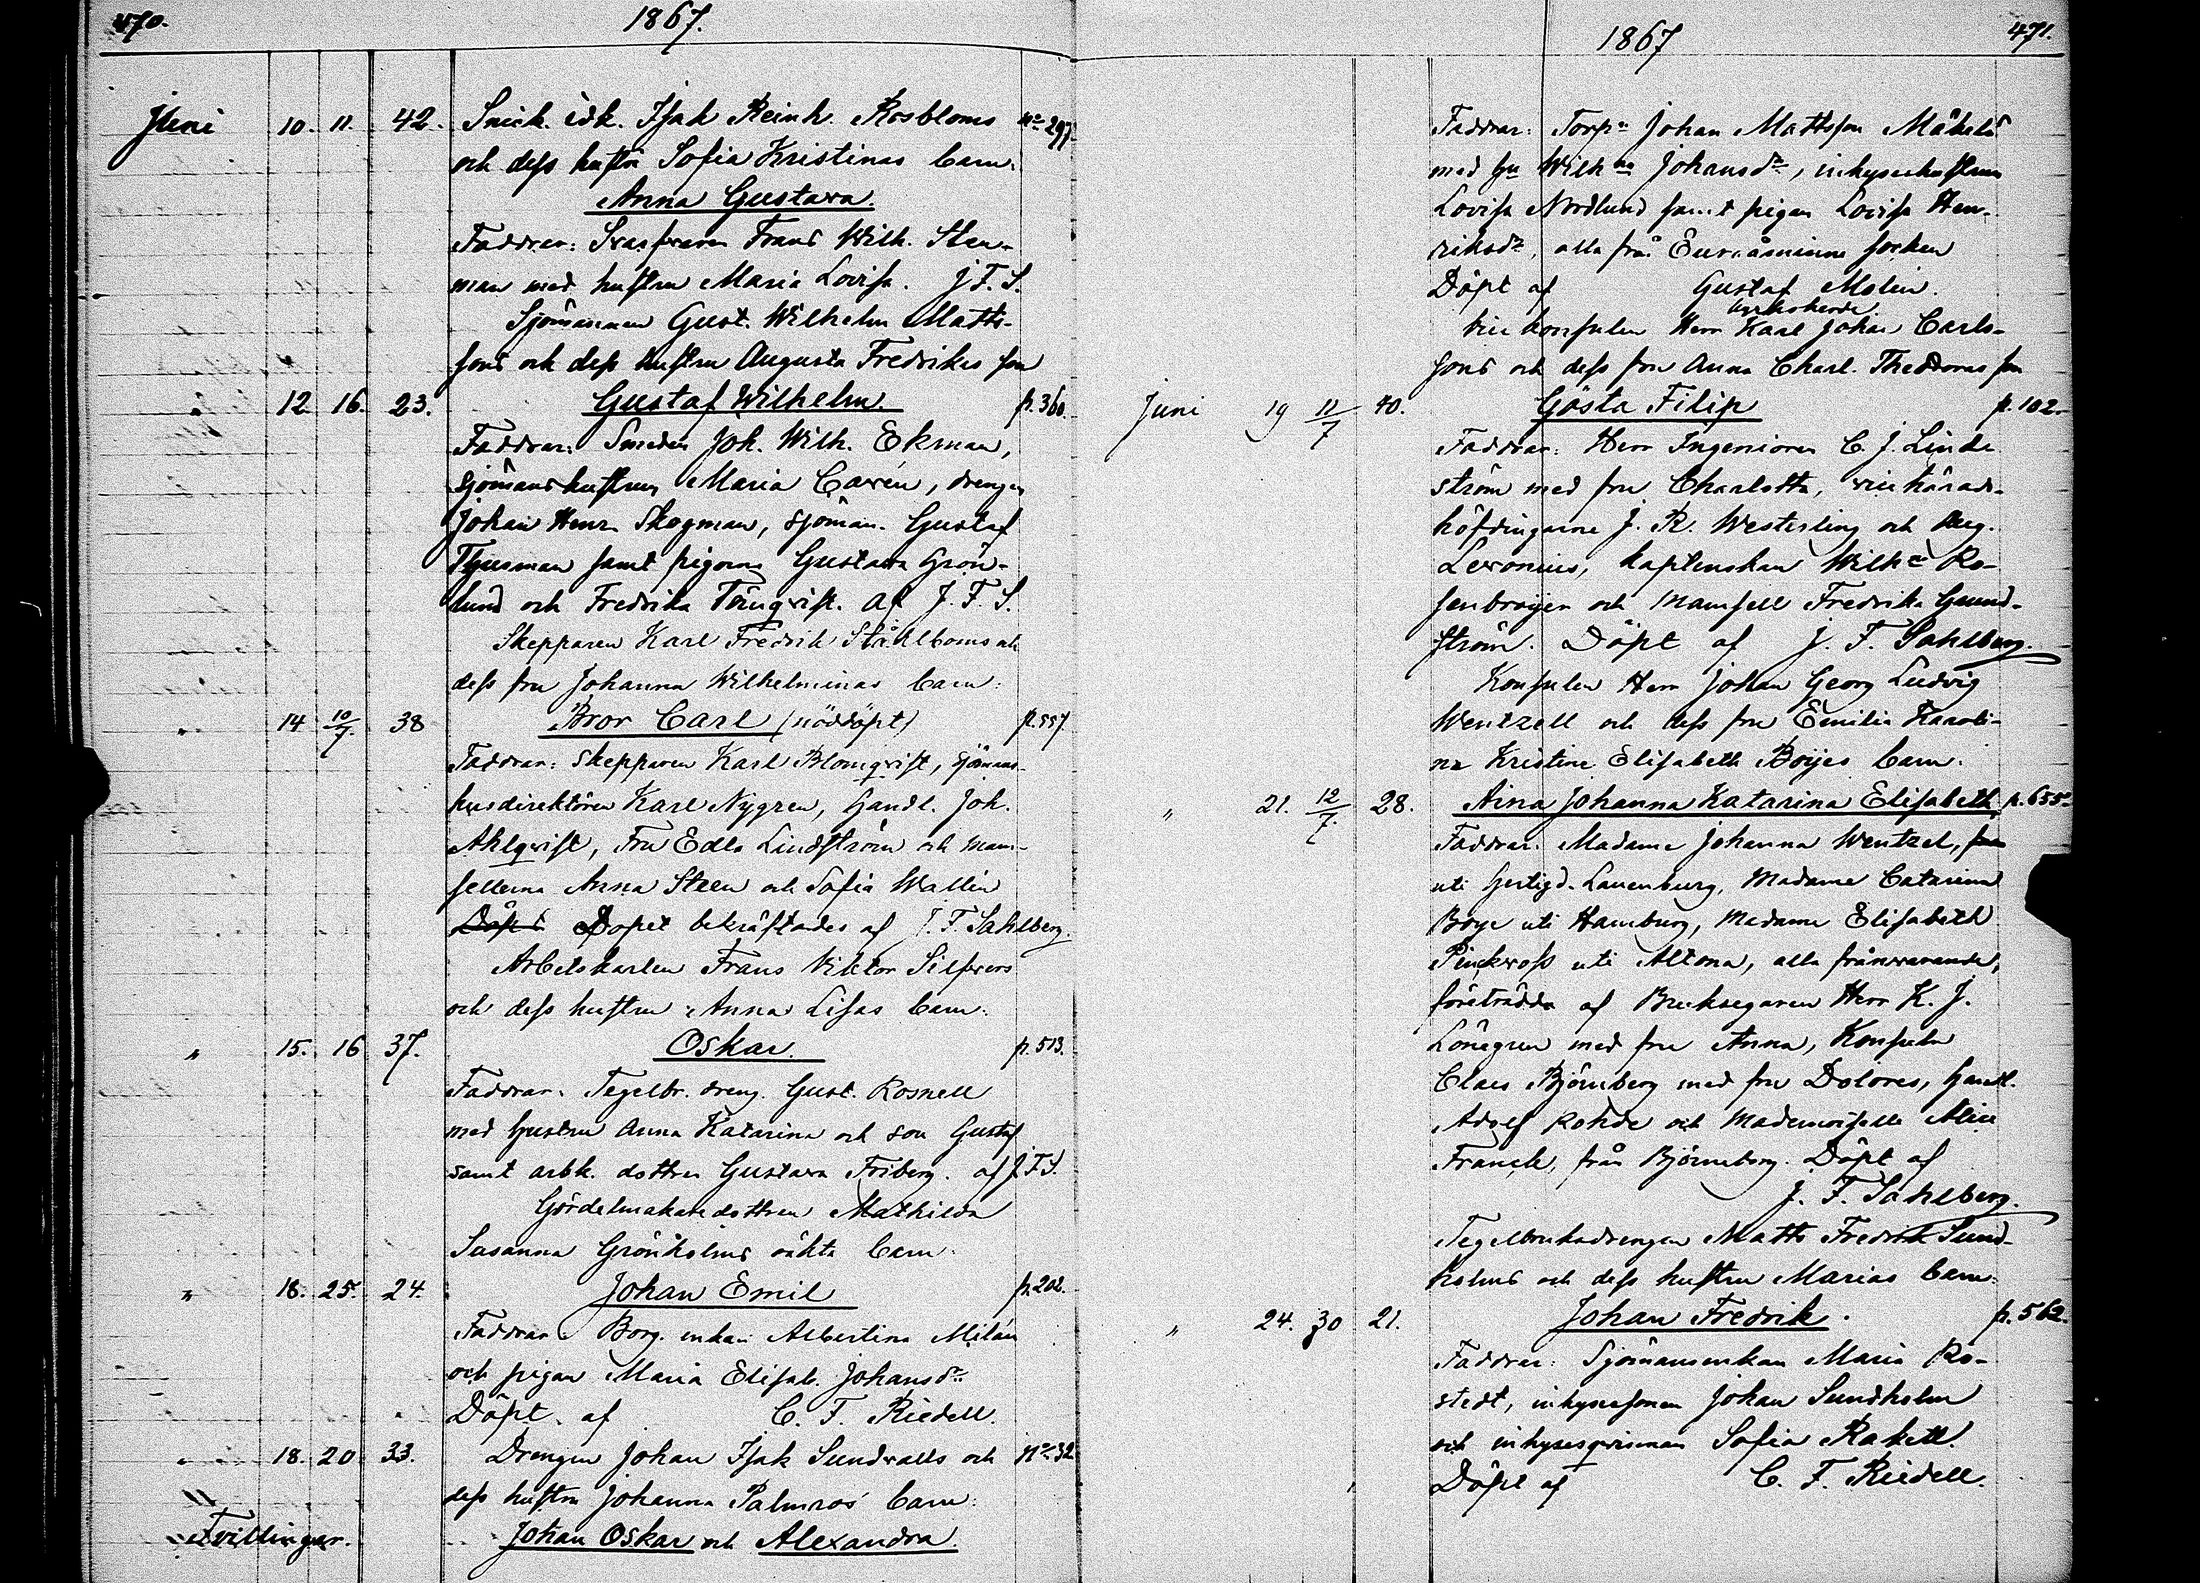 470.
1867.
Juni 10. 11. 42. Snick. idk. Isak Reinh. Rosbloms No 297.
och dess hustru Sofia Kristinas barn:
Anna Gustava.
Faddrar: Svarfvaren Frans Wilh. Sten-
man med hustru Maria Lovisa. J. F. S.
Sjömannen Gust. Wilhelm Matts-
sons och dess hustru Augusta Fredrikas son
" 12. 16. 23. Gustaf Wilhelm. p. 360.
Faddrar: Smeden Joh. Wilh. Ekman,
sjömanshustrun Maria Cavén, drengen
Johan Henr. Skogman, sjöman. Gustaf
Tjusman samt pigorna Gustava Grön-
lund och Fredrika Törnqvist. af J. F. S.
Skepparen Karl Fredrik Ståhlboms och
dess fru Johanna Wilhelminas barn:
" 14 10/7. 38 Bror Carl (nöddöpt) p. 557.
Faddrar: Skepparen Karl Blomqvist, sjömans-
husdirektören Karl Nygren, Handl. Joh.
Ahlqvist, Fru Edla Lindström och mam-
sellerna Anna Steen och Sofia Wallin
Döpt Dopet bekräftades af J. F. Sahlberg.
Arbetskarlen Frans Viktor Silfvers
och dess hustru Anna Lisas barn:
" 15. 16 37. Oskar. p. 513.
Faddrar: Tegelbr. dreng. Gust. Rosnell
med hustru Anna Katarina och son Gustaf
samt arbk. dottren Gustava Friberg. af J. F. S.
Gördelmakaredottren Mathilda
Susanna Grönholms oäkta barn:
" 18. 25. 24. Johan Emil p. 202.
Faddrar: Borg. enkan Albertina Milán
och pigan Maria Elisab. Johansdr.
Döpt af C. F. Riedell.
" 18. 20 33. Drengen Johan Isak Sundvalls och No 32
dess hustru Johanna Palmros' barn:
Tvillingar. Johan Oskar och Alexandra.
1867
471.
Faddrar: Torpn Johan Mattsson Mäkelä
med hu Wilhna Johansdr, inhysehustrun
Lovisa Nordlund samt pigan Lovisa Hen-
riksdr, alla från Euraåminne socken
Döpt af Gustaf Molin.
Vice konsulen Herr Karl Johan Carls-
sons och dess fru Anna Charl. Theodoras son
Juni 19 11/7 40. Gösta Filip p. 102.
Faddrar: Herr Ingenioren C. J. Linde
ström med fru Charlotta, vicehärads-
höfdingarne J. R. Westerling och Aug.
Levonius, kaptenskan Wilhna Ro-
senbröijer och mamsell Fredrika Grund-
ström. Döpt af J. F. Sahlberg.
Konsulen Herr Johan Georg Ludvig
Wentzell och dess fru Emilia Karoli-
na Kristine Elisabeth Boijes barn:
" 21. 12/7. 28. Aina Johanna Katarina Elisabeth p. 655.
Faddrar: Madame Johanna Wentzel,
uti Hertigd. Lauenburg, Madame Catarina
Boye uti Hamburg, Madame Elisabeth
Pinckvoss uti Altona, alla frånvarande,
företrädda af Bruksegaren Herr K. J.
Lönegren med fru Anna, Konsuln
Claes Björnberg med fru Dolores, Handl.
Adolf Rohde och Mademoiselle Alice
Franck, från Björneborg. Döpt af
J. F. Sahlberg.
Tegelbruksdrengen Matts Fredrik Sund-
holms och dess hustru Marias barn:
" 24. 30 21. Johan Fredrik. p. 562.
Faddrar: Sjömansenkan Maria Ro-
stedt, inhysesonen Johan Sundholm
och inhysesqvinnan Sofia Rakell.
Döpt af C. F. Riedell.